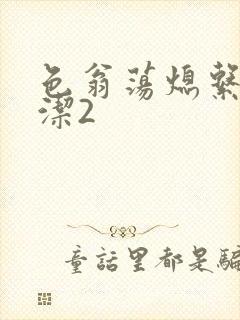 色翁荡熄繫
潔2
童話里都是騙